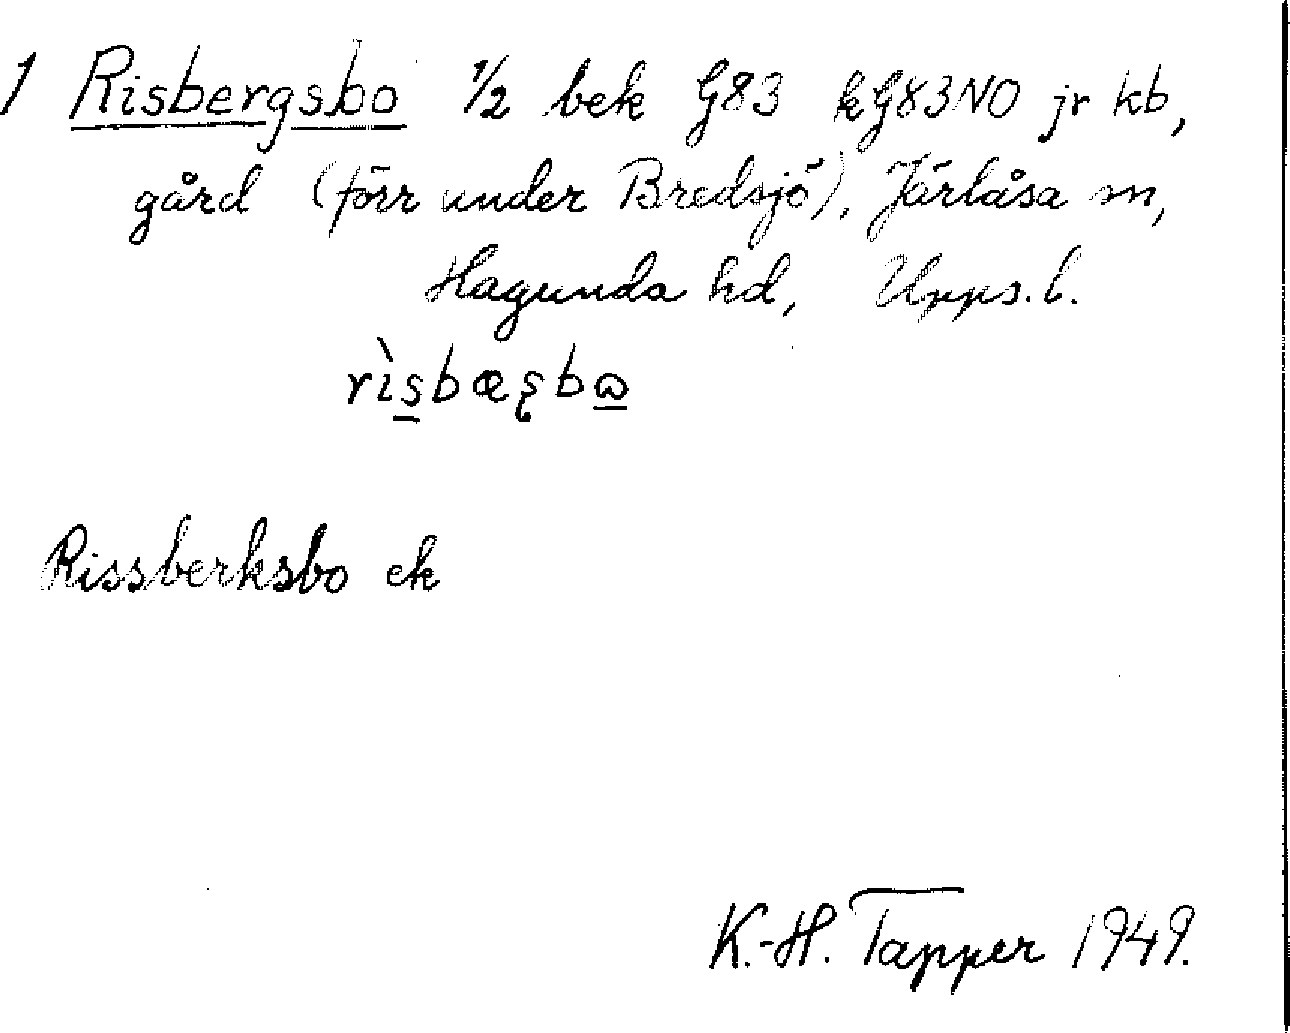 1 Risbergsbo 1/2 bek G83 kG83NO jr kb,
gård (förr under Bredsjö), Järlåsa sn,
Hagunda hd, Upps. l.
rìs̲bæʂbω̲
Rissberksbo ek
K.-H. Tapper 1949.